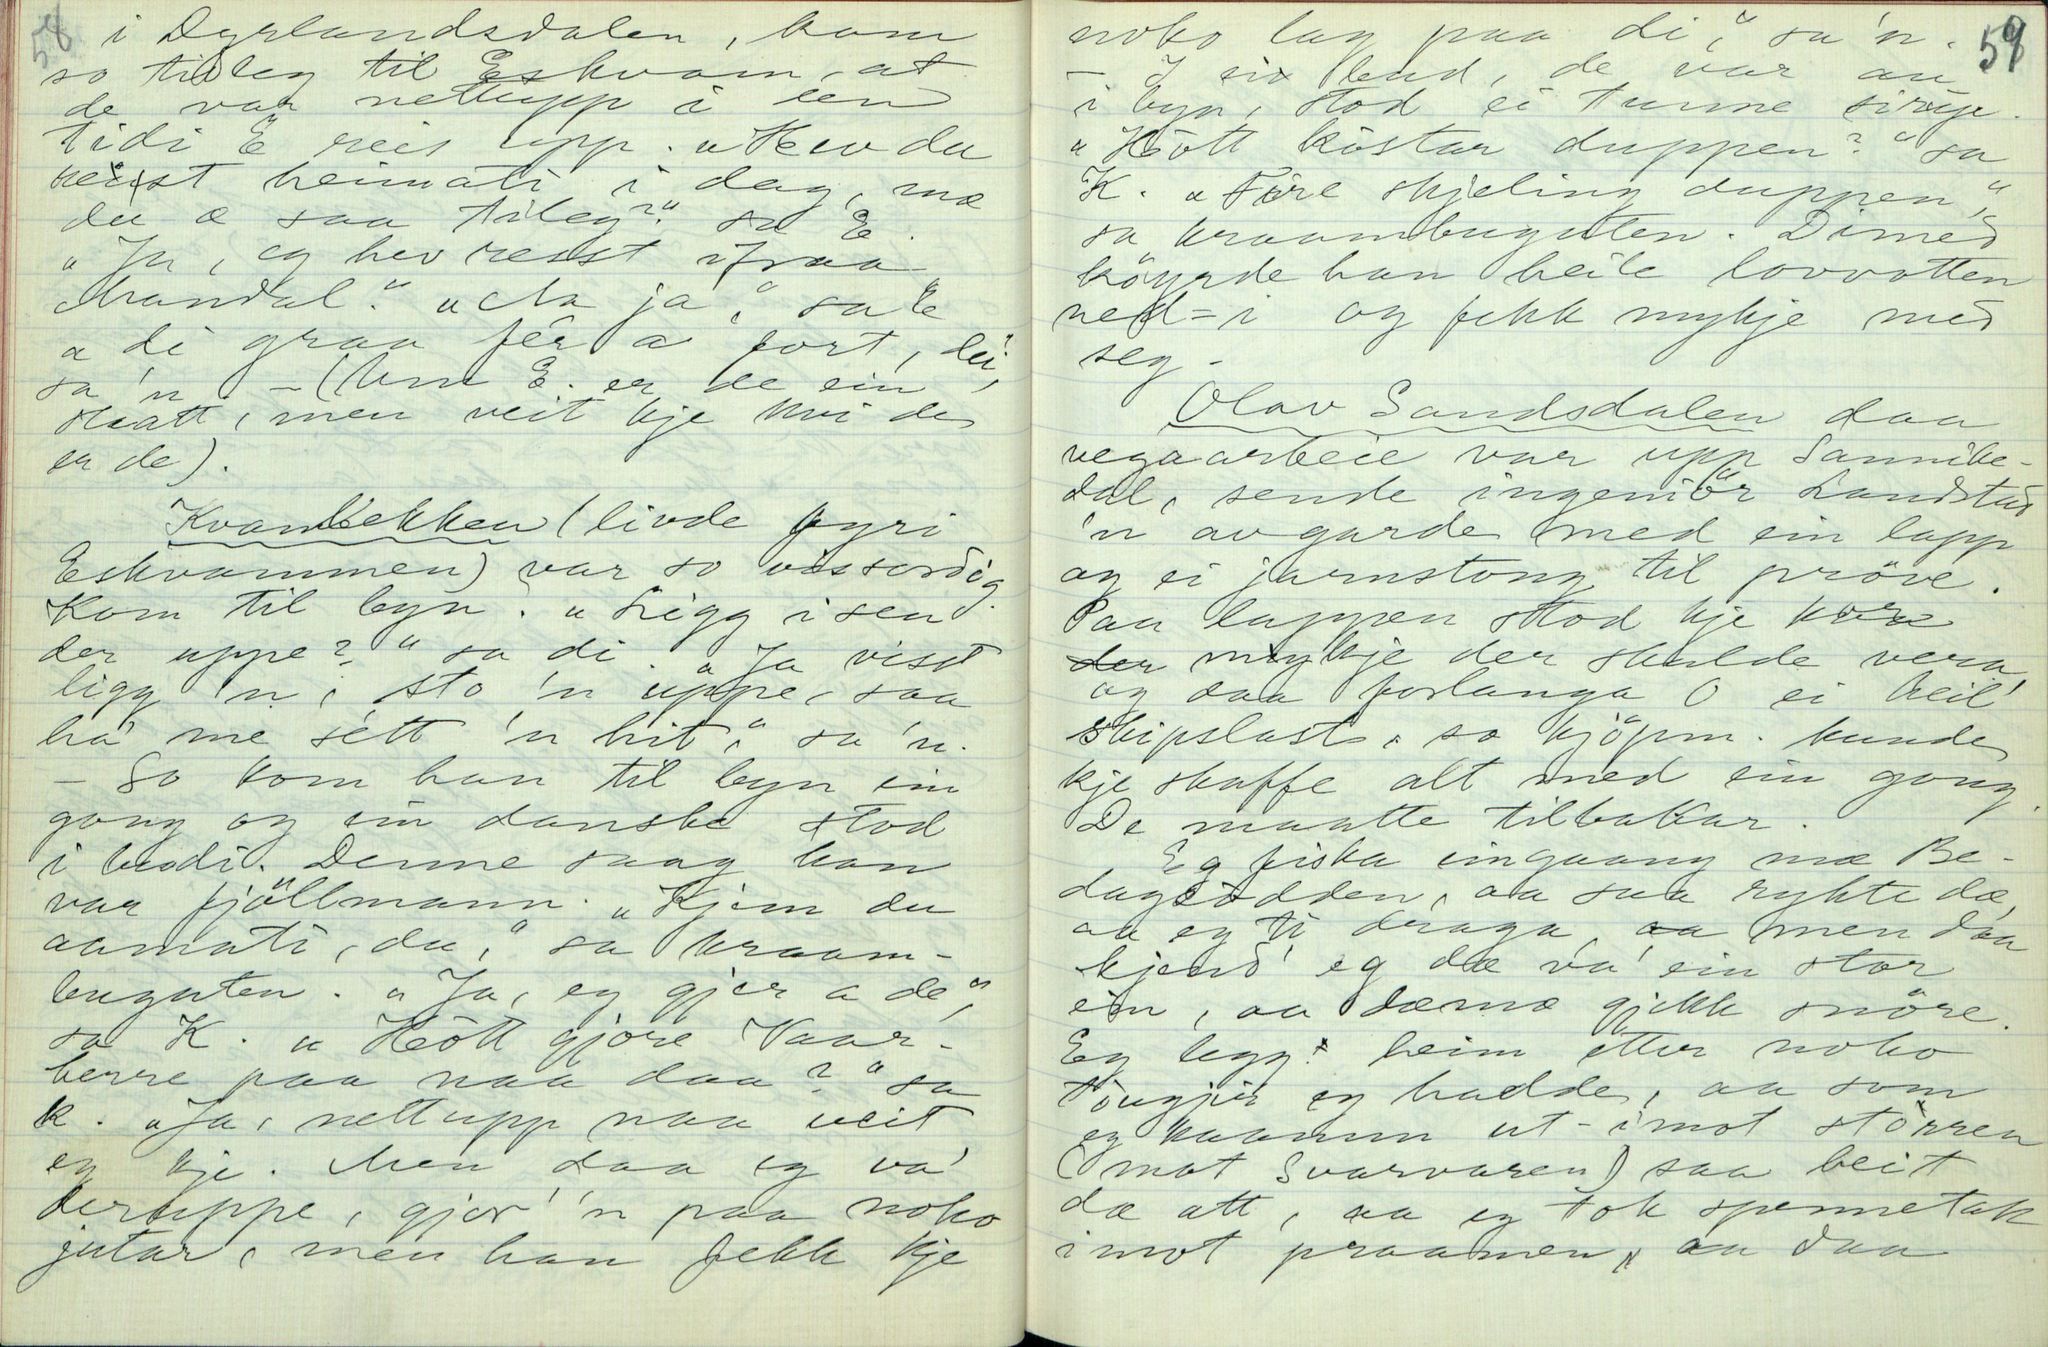 58
i Dyrlandsdalen, kom
so tidleg til Eskvam, at
de var nettupp i den
tidi E reis upp. "Hev du
reist heimati i dag, mæ
du æ saa tileg?" sa E.
"Ja, eg hev reist ifraa
Mandal." "Aa ja," sa E
"di graa fér a fort, dei,"
sa 'n - (Um E. er de ein
slaatt, men veit kje kvi de
er de).
Kvanbekken (livde fyri
Eskvammen) var so vissordig.
Kom til byn. "Ligg isen
der uppe?" sa di. "Ja visst
ligg 'n, sto 'n uppe, saa
ha' me sétt 'n hit," sa 'n.
- So kom han til byn ein
gong og ein danske stod
i budi. Denne saag han
var fjöllmann. "Kjem du
aamati, du," sa kraam-
buguten. "Ja, eg gjer a de",
sa K. "Hött gjore Vaar-
herre paa naa daa?" sa
K. "Ja, nettupp naa veit
eg kje. Men daa eg va'
deruppe, gjor' 'n paa noko
jutar, men han fekk kje
59
noko lag paa di," sa 'n.
- I ei bud, de var au
i byn, stod ei tunne sirup.
"Hött kostar duppen?" sa
K. "Fire skjeling duppen",
sa kraambuguten. Dimed
köyrde han heile lovvotten
ned-i og fekk mykje med
seg -
Olav Sandsdalen daa
vegaarbeie var upp Sannike-
dal, sende ingeniör Landstad
'n avgarde med ein lapp
og ei jarnstong til pröve.
Paa lappen stod kje kor
der mykje der skulde vera,
og daa forlanga O ei heil'
skipslast, so kjöpm. kunde
kje skaffe alt med ein gong.
De maatte tilbakar.
Eg fiska eingaang mæ Be-
dagsodden, aa saa rykte dæ,
aa eg ti draga aa men daa
kjend' eg dæ va' ein stor
ein, aa dæmæ gjekk snöre.
Eg legg heim etter noko
töugjir eg hadde, aa som
eg kaamm ut-imot störren
(mot Svarvaren) saa beit
dæ att, aa eg tok spennetak
imot praamen, aa daa